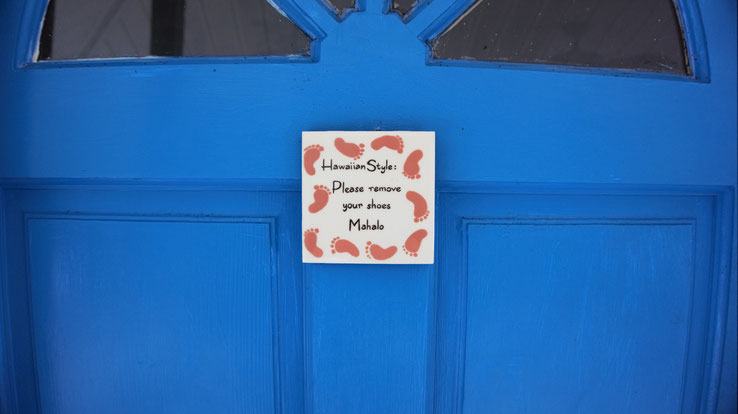 Hawaiian Style:
Please remove
your shoes
Mahalo